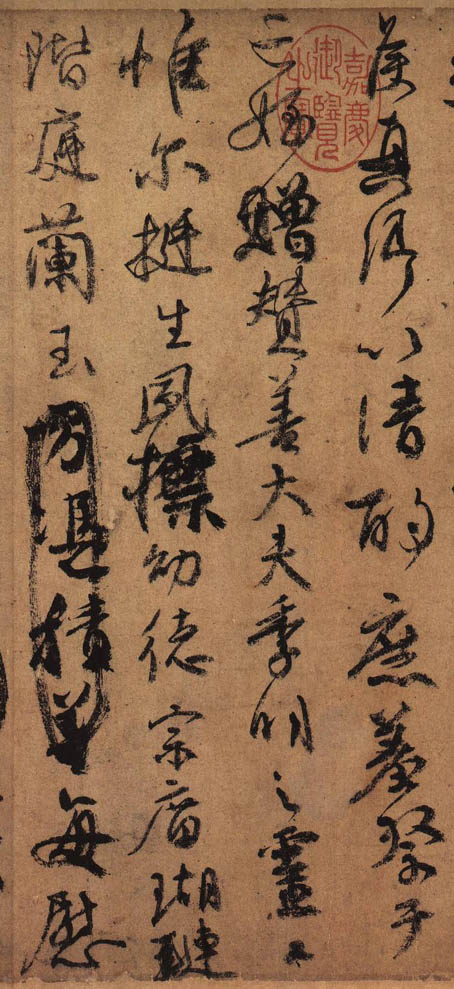 侯真卿以清酌庶羞祭于
亡姪贈贊善大夫季明之靈曰
惟尔挺生夙標幼德宗廟瑚璉
階庭蘭玉方憑積善每慰
嘉慶御覽之寶